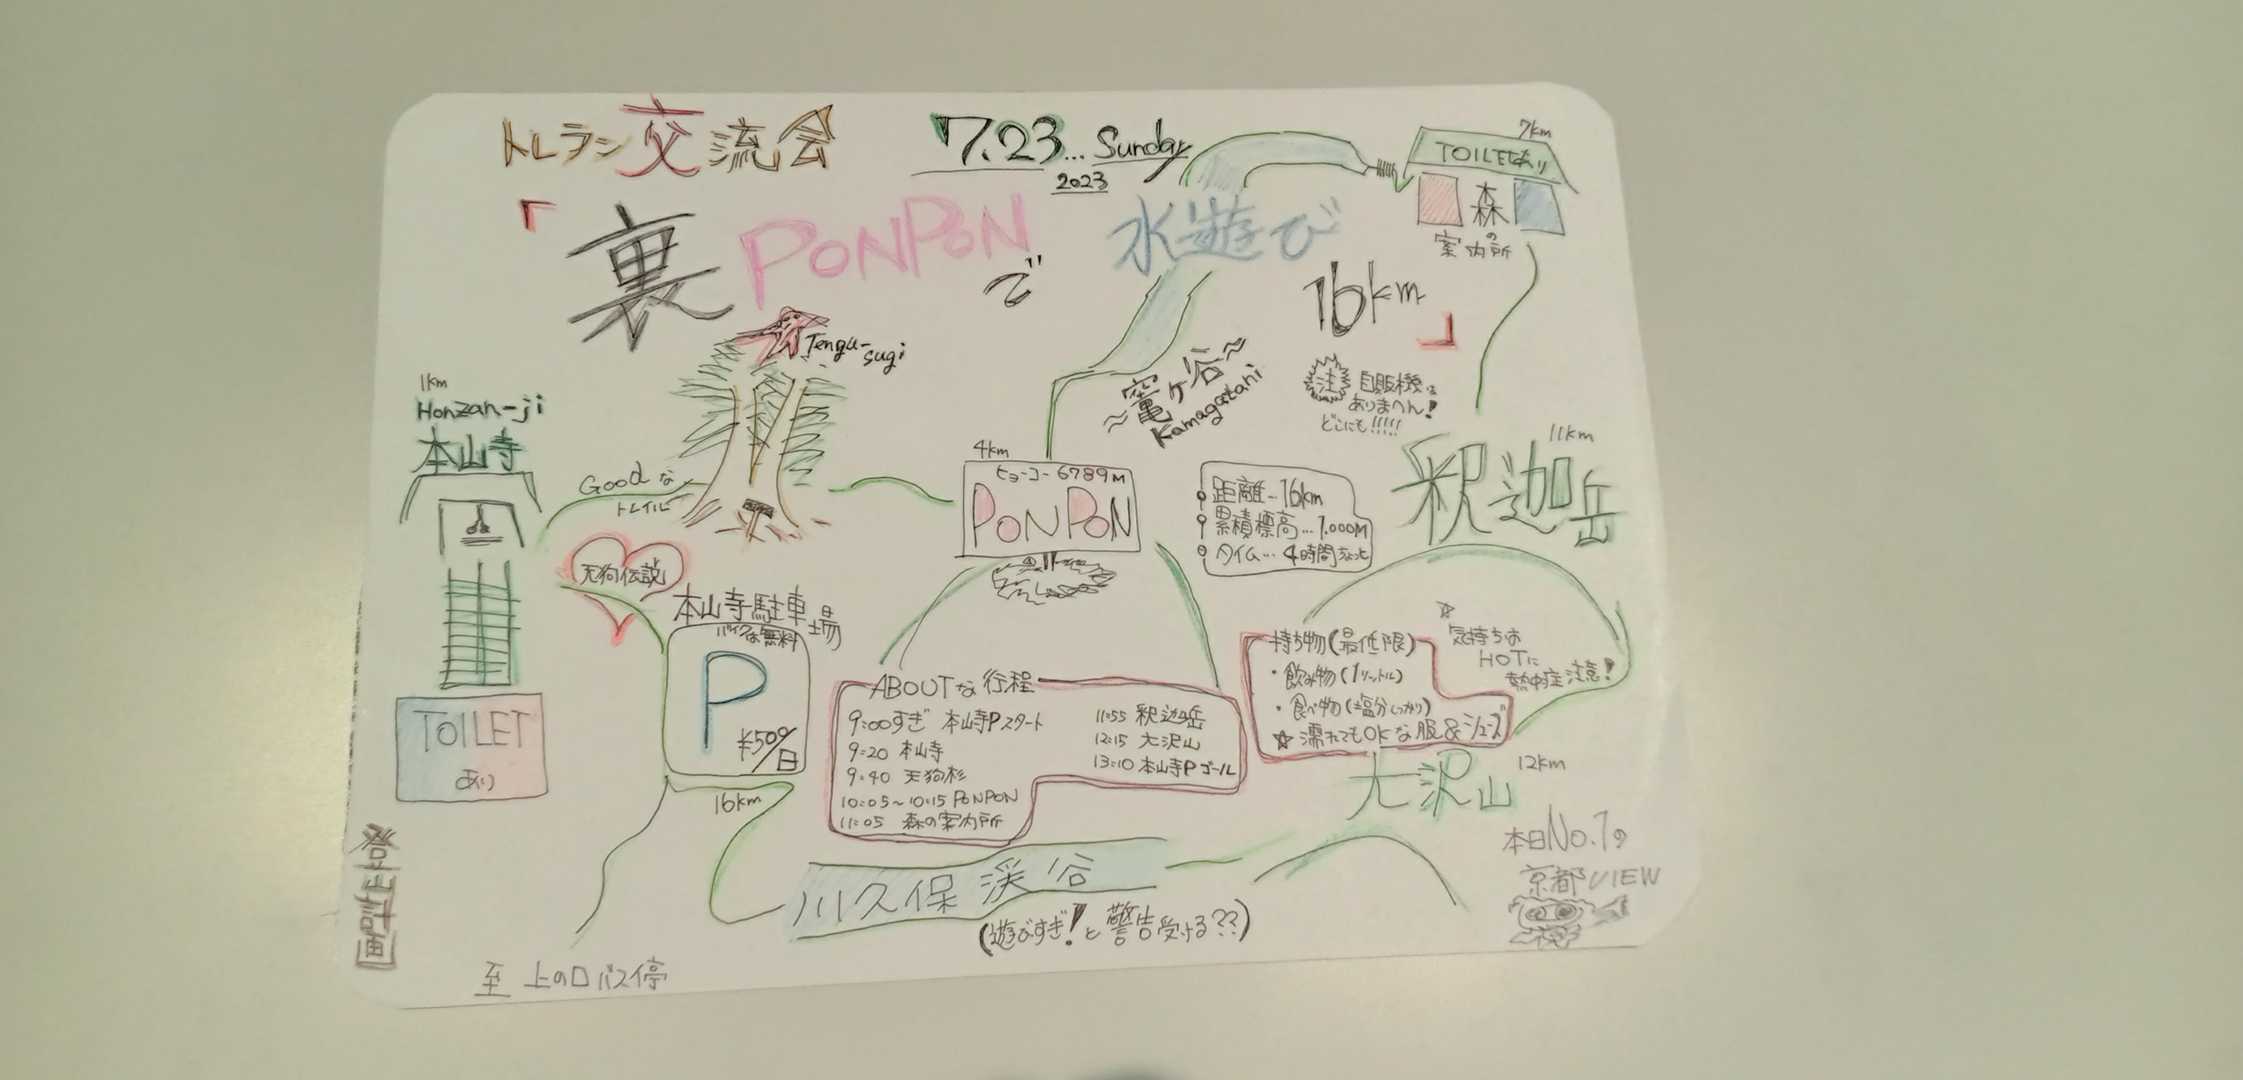 トレラン交流会
7.23...Sunday
2023
「裏PONPONで
水遊び
16km」
7km
TOILETあり
森の
案内所
Tengu-sugi
1km
Honzan-ji
本山寺
TOILET
あり
Goodな
トレイル
天狗伝説
本山寺駐車場
バイクは無料
P
¥500/日
16km
4km
ヒョーコー6789M
PONPON
～竃ヶ谷～
Kamagatani
注 自販機は
ありまへん!
どこにも!!!!!
距離...16km
累積標高...1.000M
タイム...4時間ちょっと
11km
釈迦岳
ABOUTな行程
9:00すぎ 本山寺Pスタート
9:20 本山寺
9:40 天狗杉
10:05～10:15 PONPON
11:05 森の案内所
11:55 釈迦岳
12:15 大沢山
13:10 本山寺Pゴール
持ち物(最低限)
・飲み物(1リットル)
・食べ物(塩分しっかり)
☆濡れてもOKな服&シューズ
☆気持ちは
HOTに
熱中症注意!
大沢山
12km
本日No.1の
京都VIEW
川久保渓谷
(遊びすぎ!と警告受ける??)
登山計画
至 上の口バス停